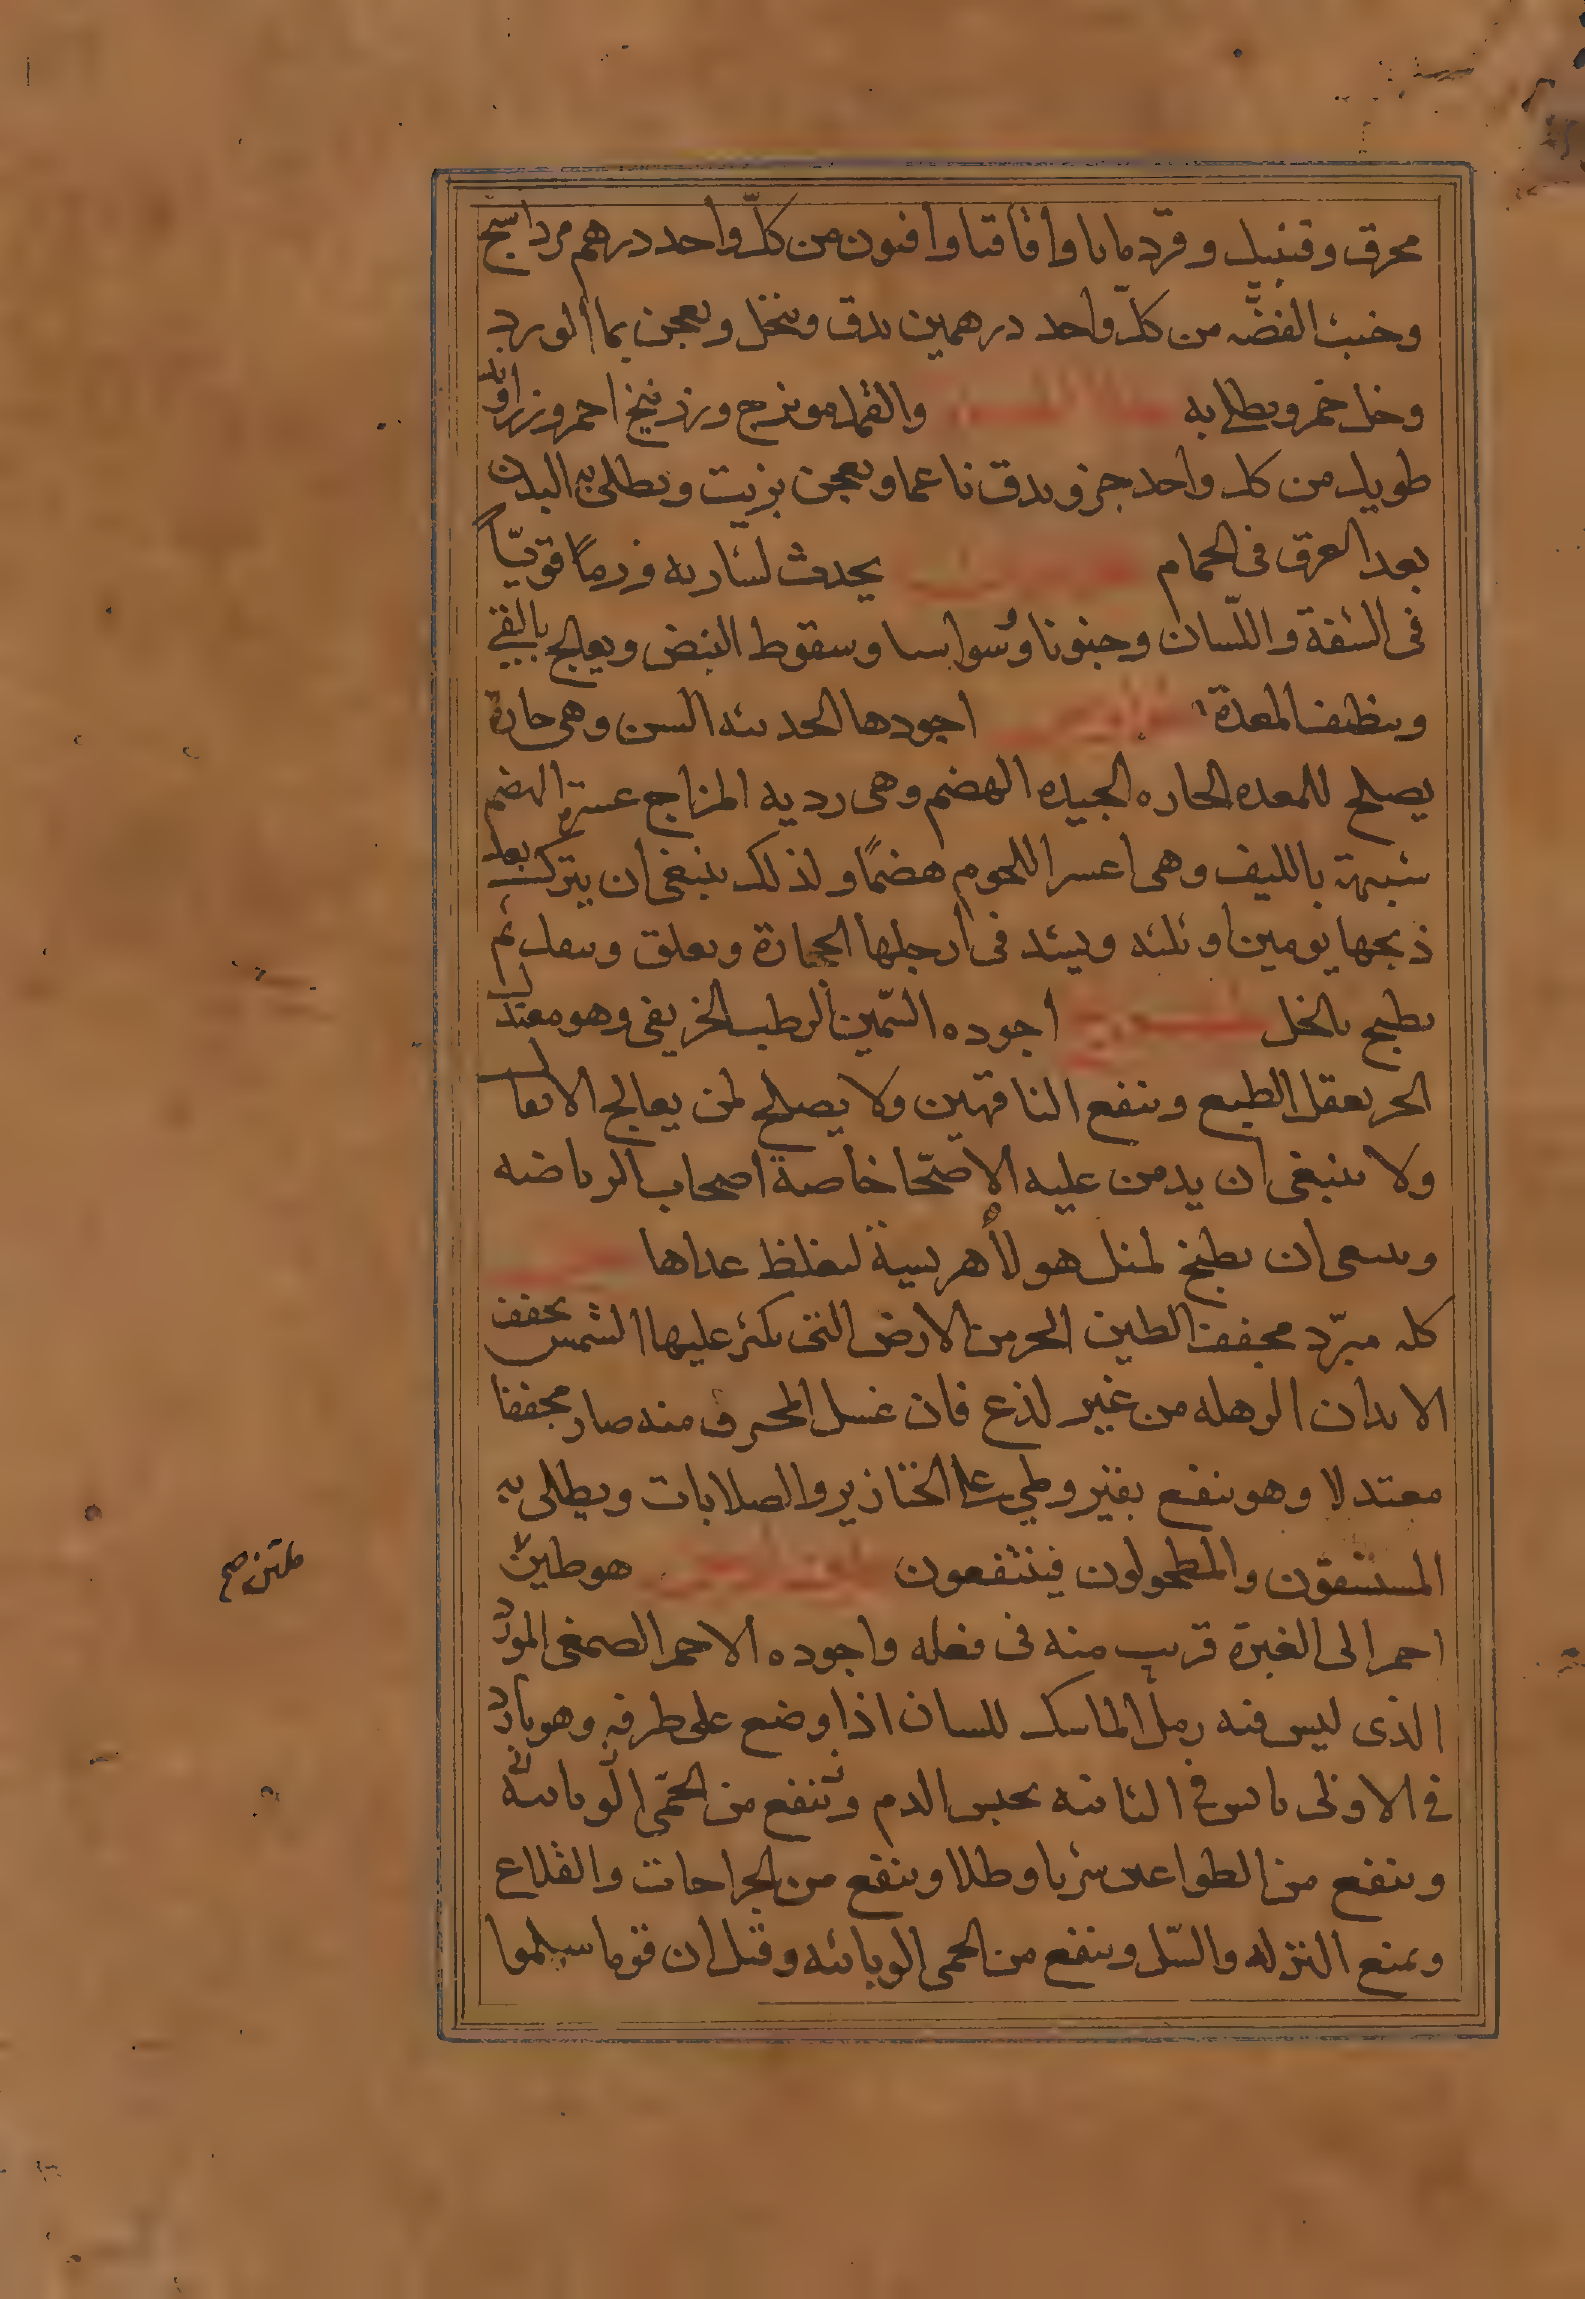 محرق وقنبيل وقردمانا وأقاقيا وأفيون من كلّ واحد درهم مرداسنج
وخبث الفضه من كلّ واحد درهمين يدق وينخل ويعجن بما الورد
وخل خمر ويطلا به والقمل مويزج وزرنيخ احمر وزراوند
طويل من كل واحد جزو يدق ناعما ويعجن بزيت ويطلى به البدن
بعد العرق فى الحمام يحدث لشاربه ورمًا قويّاً
فى الشفة واللّسان وجنونا ووسواسا وسقوط النبض ويعالج بالقى
وينظف المعدة اجودها الحديثه السن وهى حارة
يصلح للمعده الحاره الجيده الهضم وهى رديه المزاج عسرة الهضم
شبيهة بالليف وهى اعسر اللحوم هضمًا ولذلك ينبغى ان يترك بعد
ذبحها يومين او ثلثه ويشد فى ارجلها الحجارة ويعلق وينقل ثم
يطبخ بالخل اجوده السّمين الرطب الخريفى وهو معتدل
الحر يعقل الطبع وينفع الناقهين ولا يصلح لمن يعالج الاثقال
ولا ينبغى ان يدمن عليه الاصحّا خاصة اصحاب الرياضه
وينبغى ان يطبخ لمثل هولاء هريسة ليغلظ غداها
كله مبرّد مجفف الطين الحر من الارض التى يكثر عليها الشمس يجفف
الابدان الرهله من غير لذع فان غسل المحرق منه صار مجففا
معتدلا وهو ينفع بقيروطى على الخنازير والصلابات ويطلى به
المستسقون والمطحولون فينتفعون هو طين
احمر الى الغبرة قريب منه فى فعله واجوده الاحمر الصمغى المورد
الذى ليس فيه رمل الماسك للسان اذا وضع على طرفه وهو بارد
فى الاولى يابس فى الثانيه يحبس الدم وينفع من الحمّى الوبائية
وينفع من الطواعين شربا وطلا وينفع من الجراحات والقلاع
ويمنع النزله والسّل وينفع من الحمى الوبائيه وقيل ان قوما سلموا